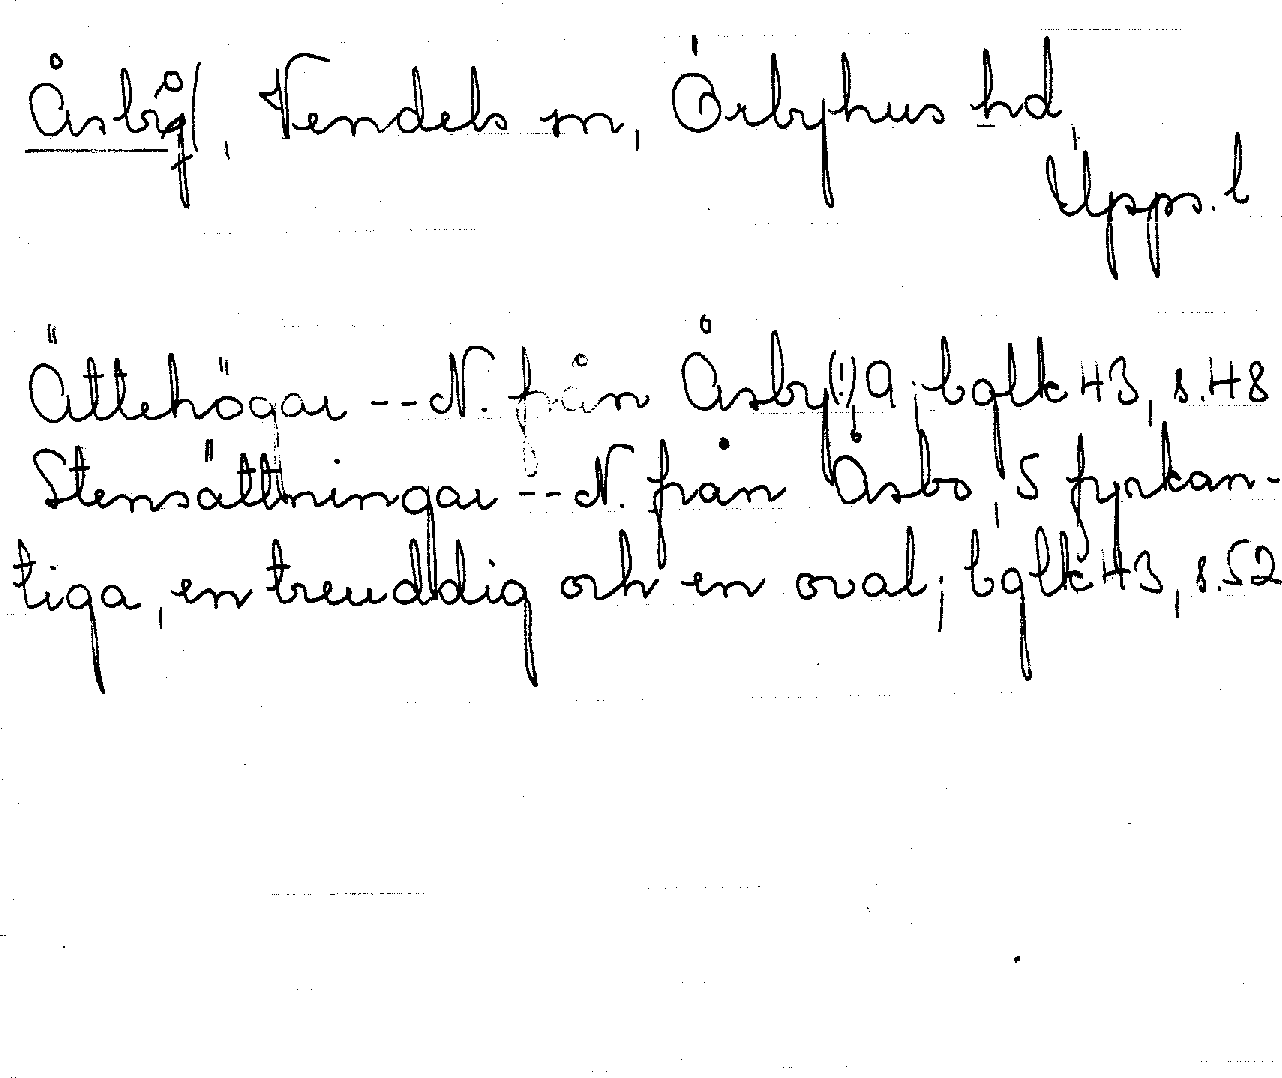 Åsbo, Vendels sn, Örbyhus hd,
Upps. l
Ättehögar -- N. från Åsby(!), 9; bglk 43, s. 48
Stensättningar -- N. från Åsbo, 5 fyrkan-
tiga, en treuddig och en oval; bglk 43, s. 52